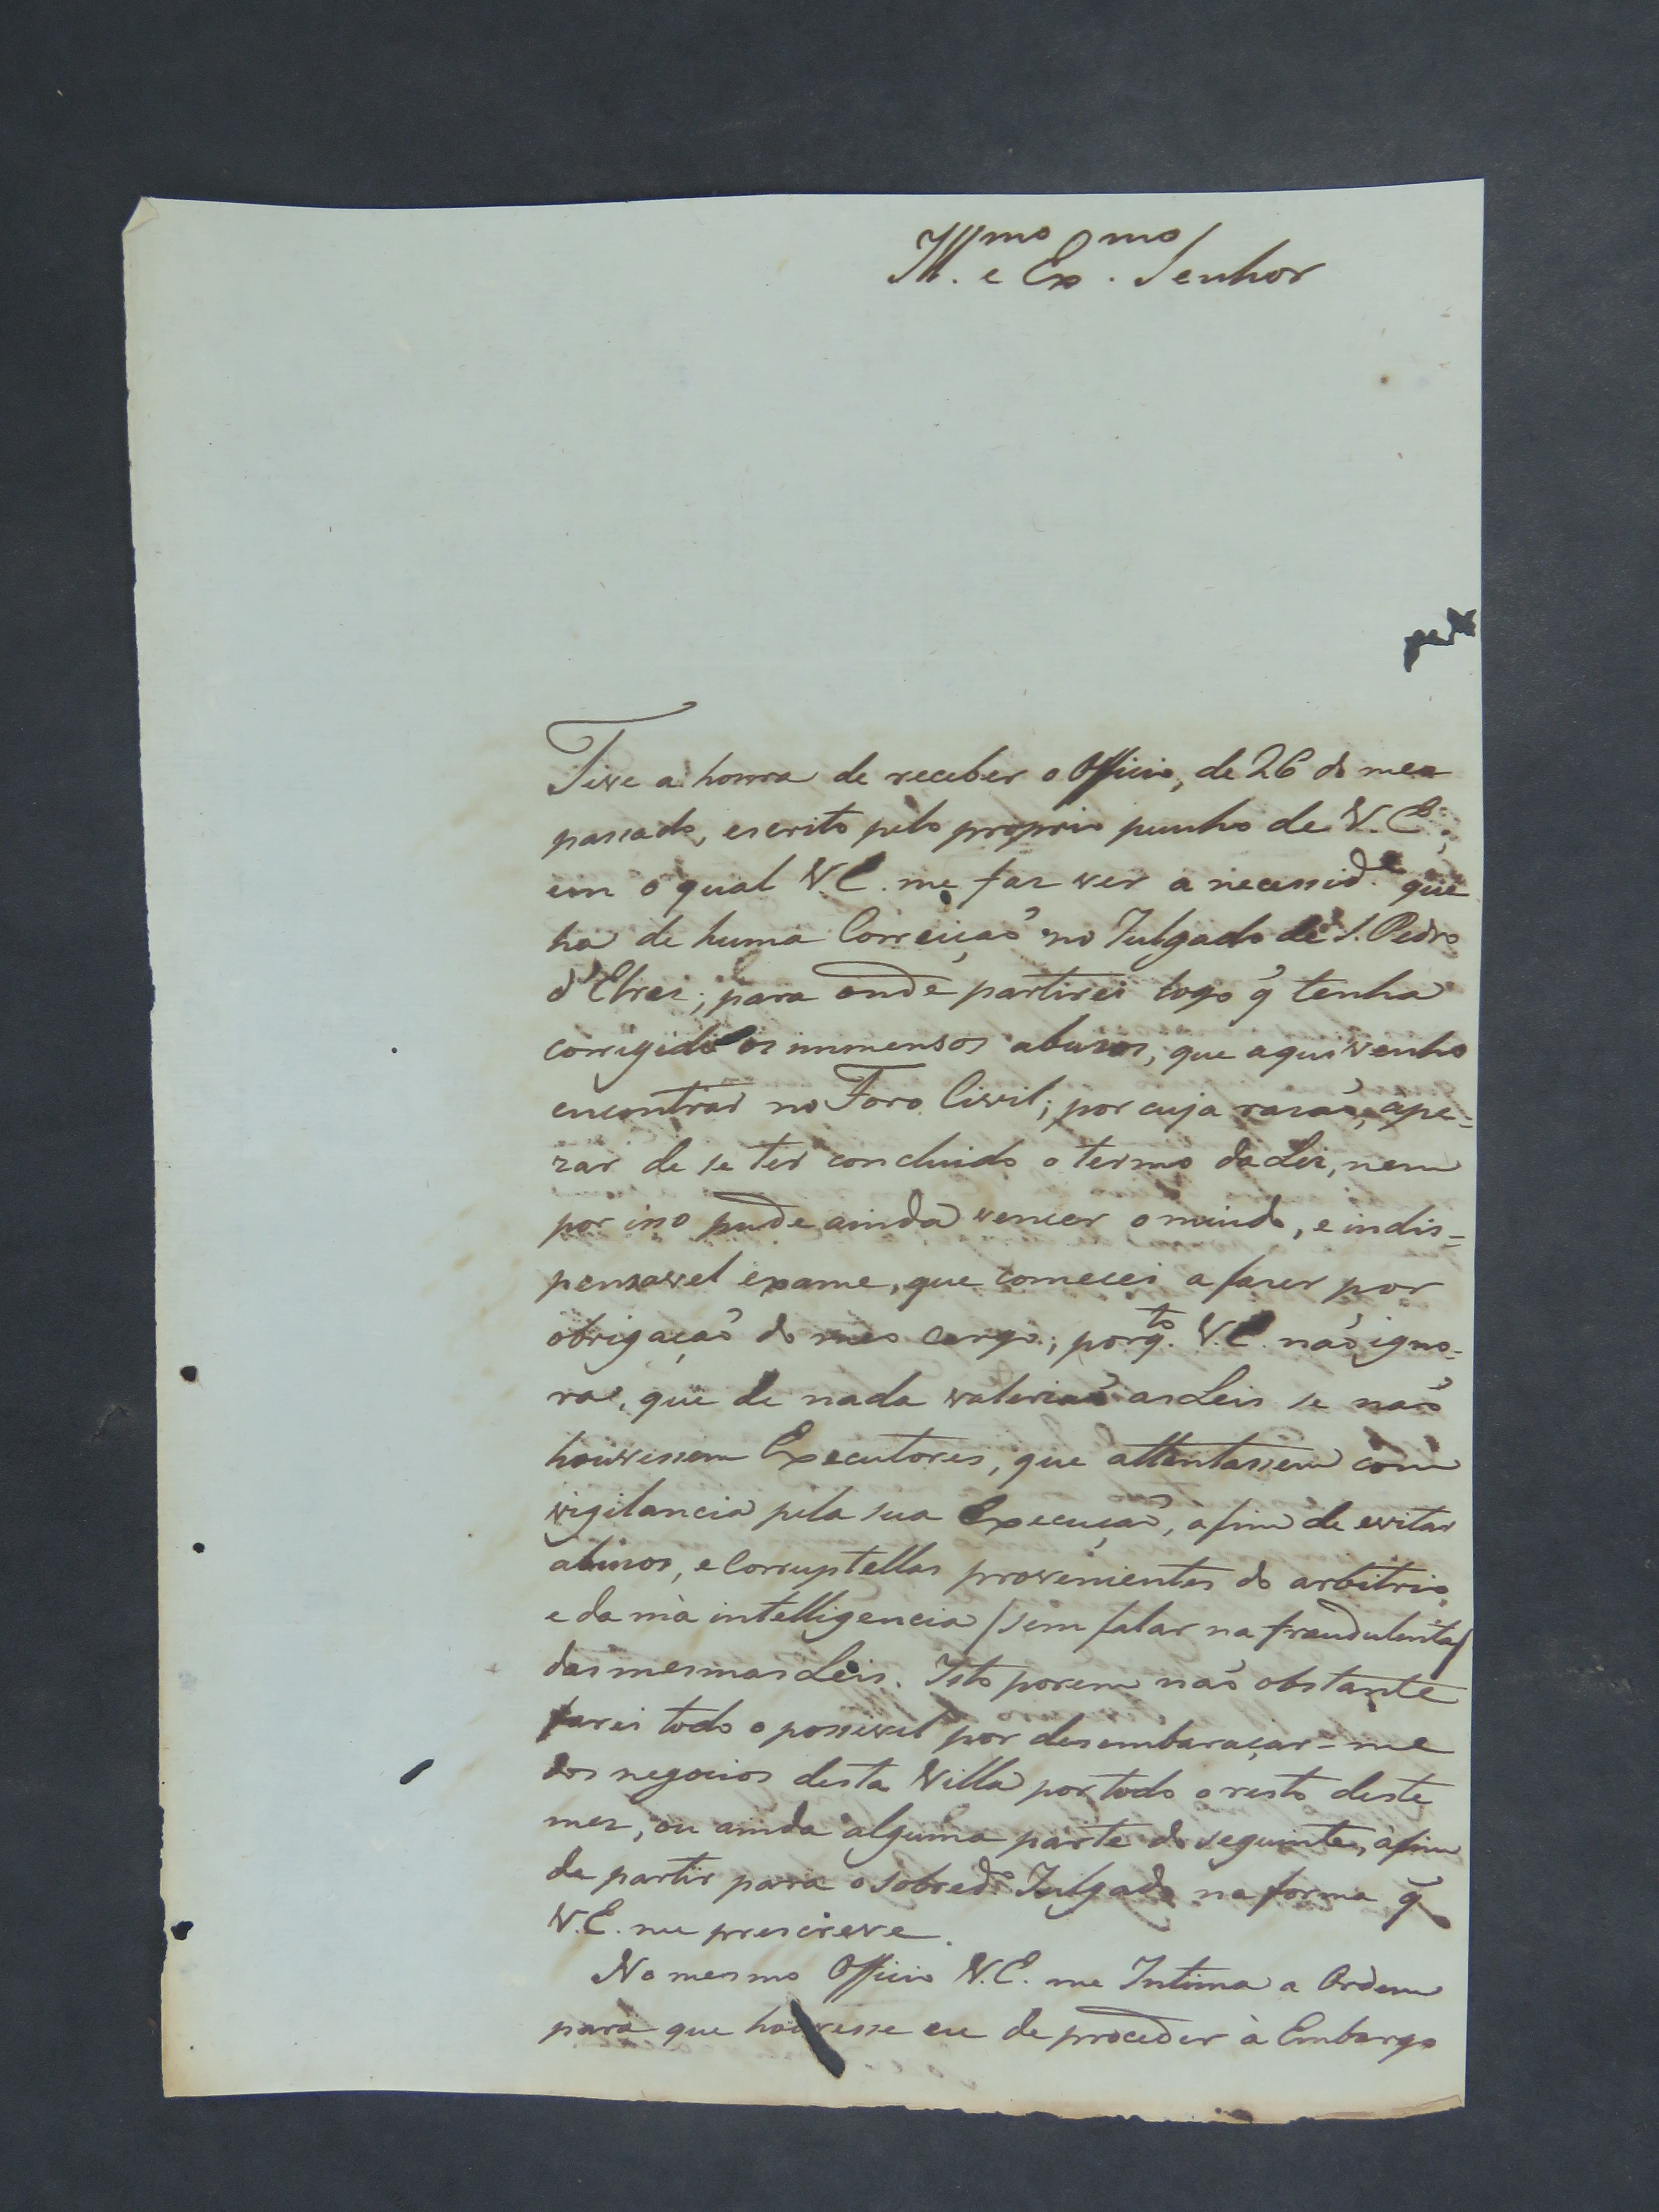 Ill.mo e Ex.mo Senhor
Tive a honra de receber o Officio, de 26 do mez
passado, escrito pelo proprio punho de V. E.;
em o qual V. E. me faz ver a necessid.e que
ha de huma Correição no Julgado de S. Pedro
d'; para onde partirei logo q̃ tenha
corrigido os immensos abusos, que aqui venho
encontrar no Foro Civil; por cuja rasão, ape-
zar de se ter concluido o termo da Lei, nem
por isso pude ainda vencer o miudo, e indis-
pensavel exame, que comecei a fazer por
obrigação do meo cargo; porq.to V. E. não igno-
ra, que de nada valerião as Leis se não
houvessem Executores, que attentassem com
vigilancia pela sua Execução, afim de evitar
abusos, e Corruptellas provenientes do arbitrio,
e da mà intelligencia /sem falar na fraudulenta/
das mesmas Leis. Isto porem não obstante
farei todo o possivel por desembaraçar-me
dos negocios desta Villa por todo o resto deste
mez, ou ainda alguma parte do seguinte, afim
de partir para o sobred.o Julgado na forma q̃
V. E. me prescreve.
No mesmo Officio V. E. me Intima a Ordem
para que houvesse eu de proceder à Embargo